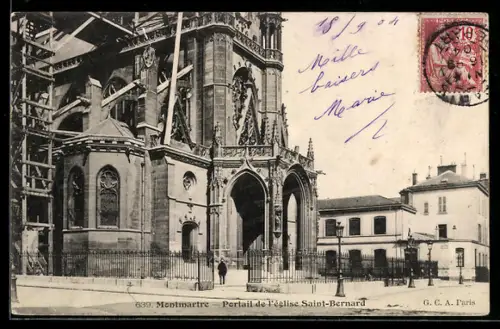 18/9 04
Mille
baisers
Marie
10
639. Montmartre — Portail de l'église Saint-Bernard
G. C. A. Paris